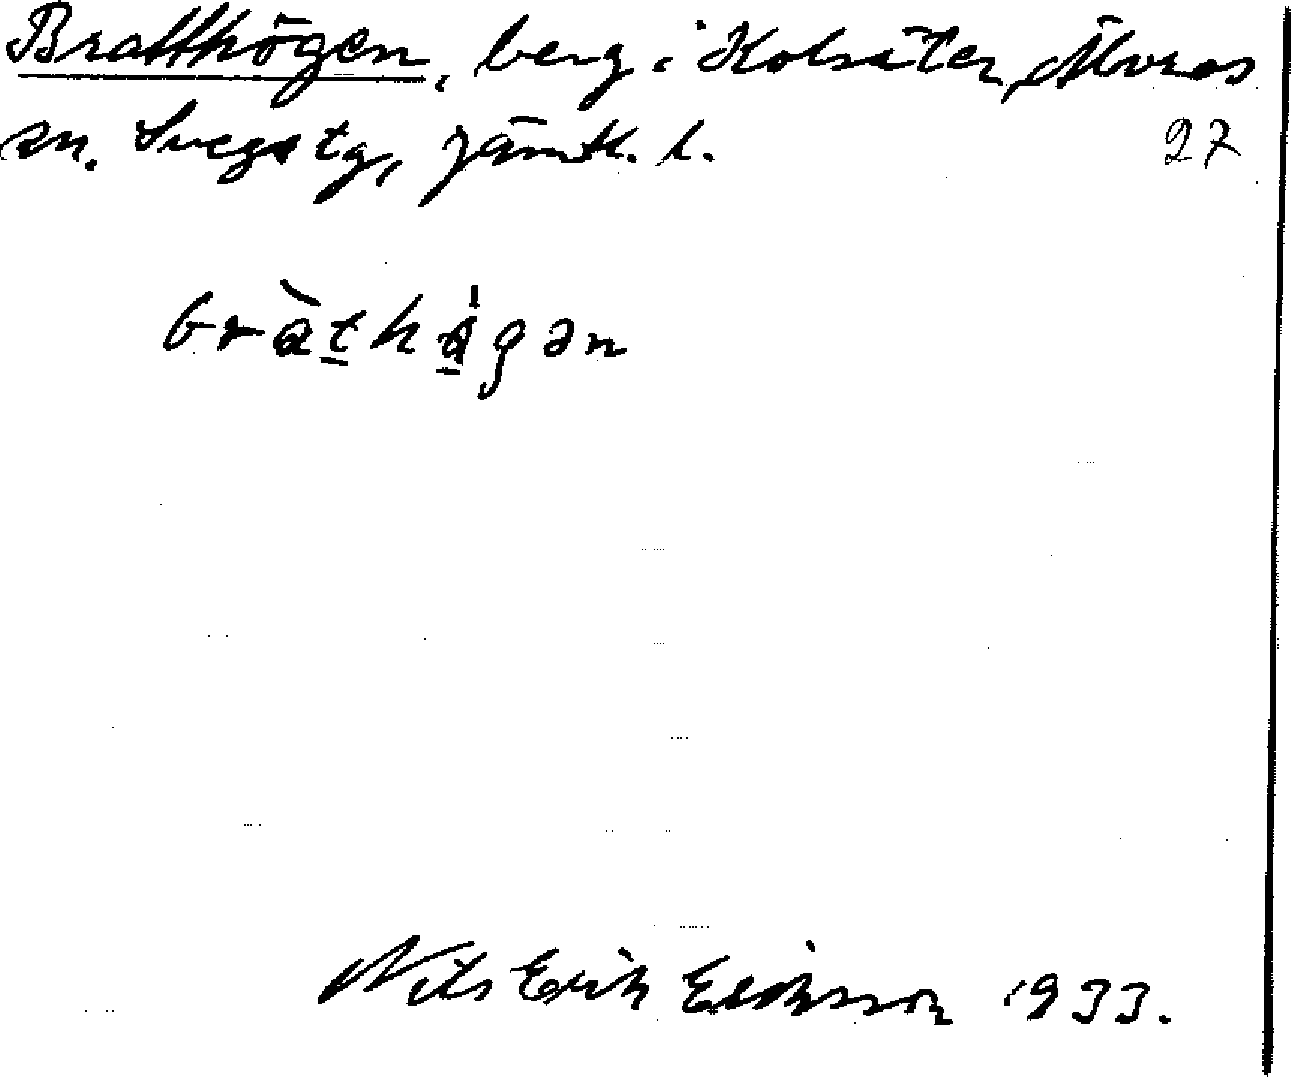 Bratthögen, berg i Kolsäter, Älvros
sn. Svegs tg, Jämtl. l. 27
bràt̲hø̲gən
Nils Erik Eriksson 1933.